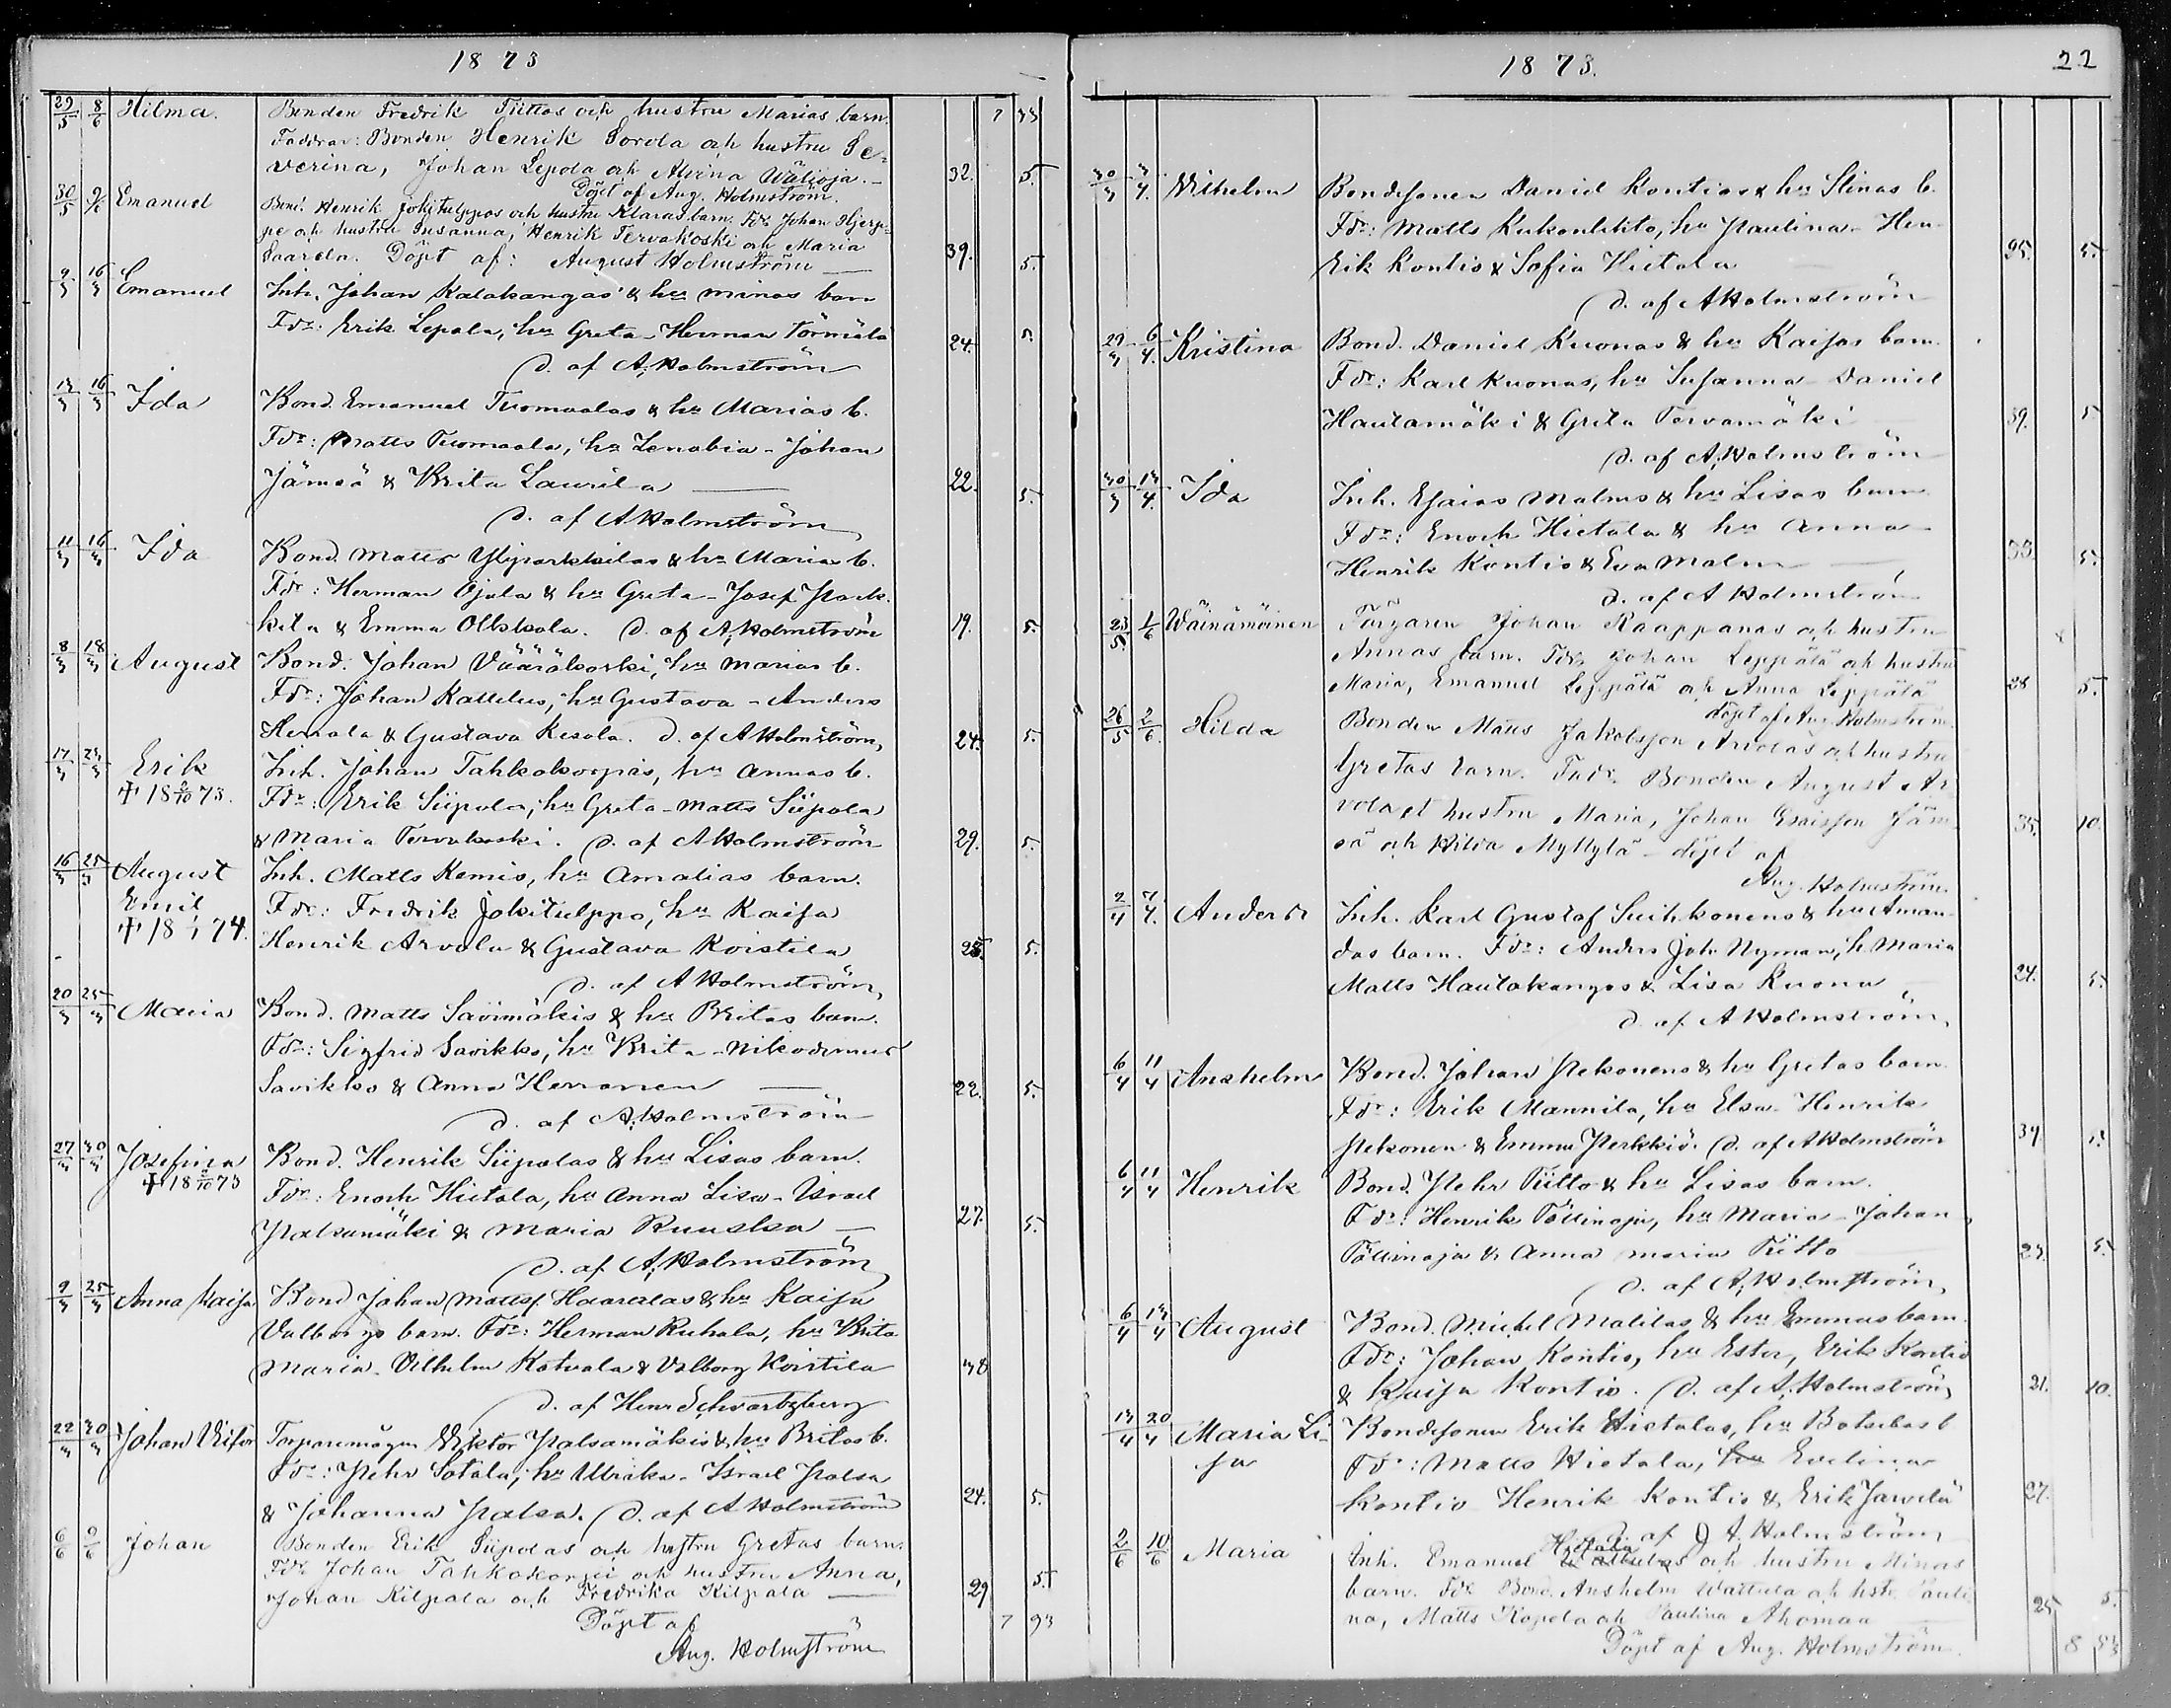 1873
7 33
29/5 8/6 Hilma. Bonden Fredrik Tiittos och hustru Marias barn.
Faddrar: Bonden Henrik Sorola och hustru Se-
verina, Johan Lepola och Alvina Wälioja. 32. 5.
Döpt af Aug. Holmström.
30/5 9/6 Emanuel Bond. Henrik Jokitulppos och hustru Klaras barn. Fdr Johan Hjerp-
pe och hustru Susanna, Henrik Tervakoski och Maria
Saarela. Döpt af: August Holmström 39. 5.
9/3 16/3 Emanuel Inh. Johan Kalakangas' & hu Minas barn
Fdr: Erik Lepola, hu Greta - Herman Törmälä 24. 5.
d. af A. Holmström
13/3 16/3 Ida Bond. Emanuel Tuomaalas & hu Marias b.
Fdr: Matts Tuomaala, hu Zenobia - Johan
Jämsä & Brita Laurila 22. 5.
d. af A Holmström
11/3 16/3 Ida Bond. Matts Yliparkkilas & hu Marias b.
Fdr: Herman Ojala & hu Greta - Josef Park-
kila & Emma Ollikkala. d. af A. Holmström 19. 5.
8/3 18/3 August Bond. Johan Vääräkoski, hu Marias b.
Fdr: Johan Kattelus, hu Gustava - Anders
Heikala & Gustava Kesola. d. af A Holmström 24. 5.
17/3 23/3 Erik Inh. Johan Tahkokorpis, hu Annas b.
✝ 18 9/10 73. Fdr: Erik Siipola, hu Greta - Matts Siipola
& Maria Tervakoski. d. af A Holmström 29. 5.
16/3 25/3 August Inh. Matts Kemis, hu Amalias barn.
Emil Fdr: Fredrik Jokitulppo, hu Kaisa
✝ 18 1/1 74. Henrik Arvola & Gustava Koistila 25. 5.
d. af A Holmström
20/3 25/3 Maria Bond. Matts Savimäkis & hu Britas barn.
Fdr: Sigfrid Savikko, hu Brita - Nikodemus
Savikko & Anna Herronen 22. 5.
d. af A. Holmström
27/3 30/3 Josefina Bond. Henrik Siipolas & hu Lisas barn.
✝ 18 9/10 73 Fdr: Enoch Hietala, hu Anna Lisa - Israel
Palsamäki & Maria Ruuska 27. 5.
d. af A. Holmström
9/3 25/3 Anna Kaisa Bond Johan Mattsf. Haaralas & hu Kaisa
Valborgs barn. Fdr: Herman Ruhala, hu Brita
Maria - Vilhelm Kotvala & Valborg Koistila 38
d. af Henr Schwartzberg
22/3 30/3 Johan Viktor Torparemågen Viktor Palsamäkis & hu Britas b.
Fdr: Pehr Sotala, hu Ulrika - Israel Palsa
& Johanna Palsa. d. af A Holmström 24. 5.
6/6 9/6 Johan Bonden Erik Siipolas och hustru Gretas barn.
Fdr Johan Tahkokorpi och hustru Anna,
Johan Kilpala och Fredrika Kilpala 29 5.
Döpt af 7 93
Aug. Holmström
1873. 22
30/3 3/4. Vilhelm Bondesonen Daniel Kontios & hu Stinas b.
Fdr: Matts Kukonlehto, hu Paulina - Hen-
rik Kontio & Sofia Hietala 25. 5.
d. af A Holmström
29/3 6/4. Kristina Bond. Daniel Kuonas & hu Kaisas barn.
Fdr: Karl Kuonas, hu Susanna - Daniel
Hautamäki & Greta Tervamäki 39. 5
d. af A. Holmström
30/3 13/4. Ida Inh. Esaias Malms & hu Lisas barn
Fdr: Enoch Hietala & hu Anna
Henrik Kontio & Eva Malm 33. 5.
d. af A Holmström
23/5. 1/6 Wäinämöinen Färgaren Johan Raappanas och hustru
Annas barn. Fdr Johan Leppälä och hustru
Maria, Emanuel Leppälä och Anna Leppälä 28 5.
döpt af Aug. Holmström.
26/5 2/6. Hilda Bonden Matts Jakobsson Arvolas och hustru
Gretas barn. Fadr. Bonden August Ar-
vola et hustru Maria, Johan Esaisson Jäm-
sä och Hilda Myllylä - döpt af 35. 10.
Aug. Holmström.
2/4 7/4. Anders Inh. Karl Gustaf Suihkonens & hu Aman-
das barn. Fdr: Anders Joh. Nyman, h. Maria
Matts Hautakangas & Lisa Kuona 24. 5.
d. af A Holmström,
6/4 11/4 Anshelm Bond. Johan Pekonens & hu Gretas barn.
Fdr: Erik Mannila, hu Elsa - Henrik
Pekonen & Emma Perkkiö. d. af A Holmström 34 5.
6/4 11/4 Henrik Bond. Pehr Tiitto & hu Lisas barn.
Fdr: Henrik Pöllinoja, hu Maria - Johan
Pöllinoja & Anna Maria Tiitto 23. 5.
d. af A. Holmström,
6/4 13/4 August Bond. Mickel Malilas & hu Emmas barn.
Fdr: Johan Kontio, hu Ester, Erik Kontio
& Kaisa Kontio. d. af A. Holmström 21. 10.
13/4 20/4 Maria Li- Bondesonen Erik Hietalas, hu Botsebas b
sa Fdr: Matts Hietala, hu Evelina
Kontio Henrik Kontio & Erik Jarvelä 27.
d. af A. Holmström
2/6 10/6 Maria Inh. Emanuel Hietala och hustru Minas
barn. Fdr Bond. Anshelm Wattula och hstr. Pauli-
na, Matts Kopela och Paulina Ahomaa 25 5.
Döpt af Aug. Holmström. 8 53